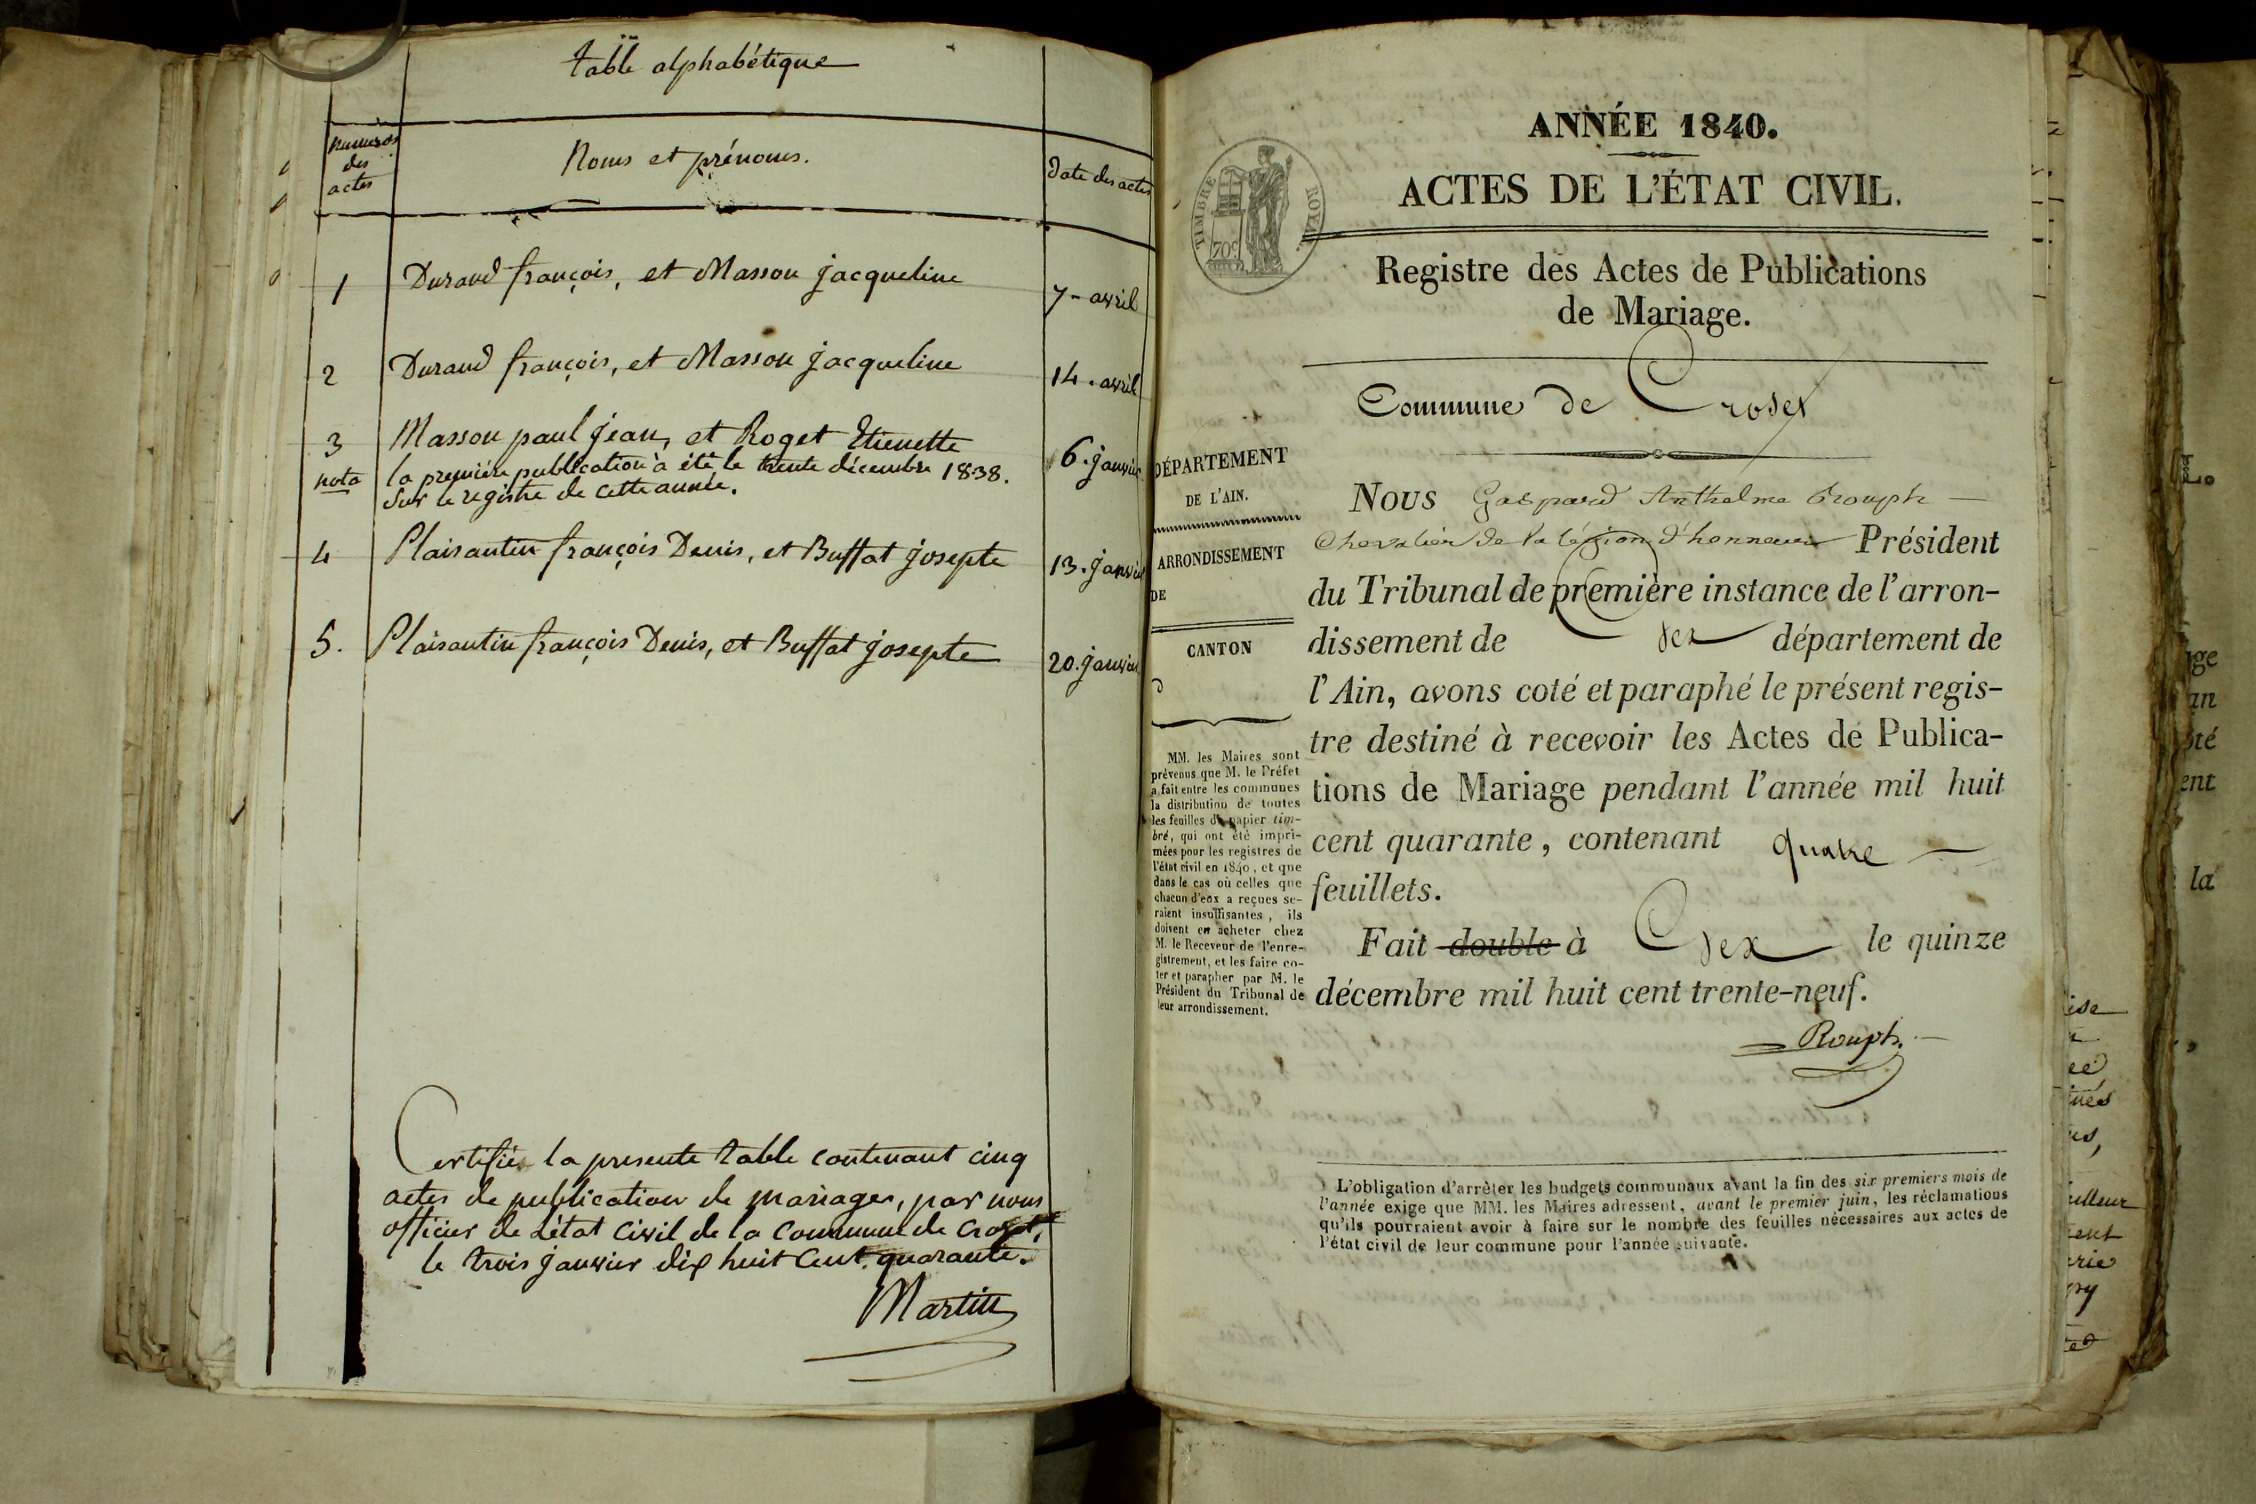 table alphabétique
Numéros
des
actes
Noms et prénoms.
Date des actes
1 Durand françois, et Masson jacqueline 7 - avril
2 Durand françois, et Masson jacqueline 14. avril
3 Masson paul jean, et Roget Etienette 6. janvier
nota la première publication à été le trente décembre 1838.
sur le registre de cette année.
4 Plaisantin françois Denis, et Buffat josepte 13. janvier
5. Plaisantin françois Denis, et Buffat josepte 20. janvier
Certifiée la presente table contenant cinq
actes de publication de mariages, par nous
officier de l'état civil de la Commune de Crozet,
le trois janvier dix huit Cent quarante.
Martin
ANNÉE 1840.
ACTES DE L'ÉTAT CIVIL.
TIMBRE ROYAL
70c
Registre des Actes de Publications
de Mariage.
Commune de Crozet
DÉPARTEMENT
DE L'AIN.
ARRONDISSEMENT
DE
CANTON
D
MM. les Maires sont
prévenus que M. le Préfet
a fait entre les communes
la distribution de toutes
les feuilles de papier tim-
bré, qui ont été impri-
mées pour les registres de
l'état civil en 1840, et que
dans le cas où celles que
chacun d'eux a reçues se-
raient insuffisantes, ils
doivent en acheter chez
M. le Receveur de l'enre-
gistrement, et les faire co-
ter et parapher par M. le
Président du Tribunal de
leur arrondissement.
Nous Gaspard Anthelme Rouph
Chevalier de la légion d'honneur Président
du Tribunal de première instance de l'arron-
dissement de Gex département de
l'Ain, avons coté et paraphé le présent regis-
tre destiné à recevoir les Actes de Publica-
tions de Mariage pendant l'année mil huit
cent quarante, contenant quatre
feuillets.
Fait double à Gex le quinze
décembre mil huit cent trente-neuf.
Rouph.
L'obligation d'arrêter les budgets communaux avant la fin des six premiers mois de
l'année exige que MM. les Maires adressent, avant le premier juin, les réclamations
qu'ils pourraient avoir à faire sur le nombre des feuilles nécessaires aux actes de
l'état civil de leur commune pour l'année suivante.